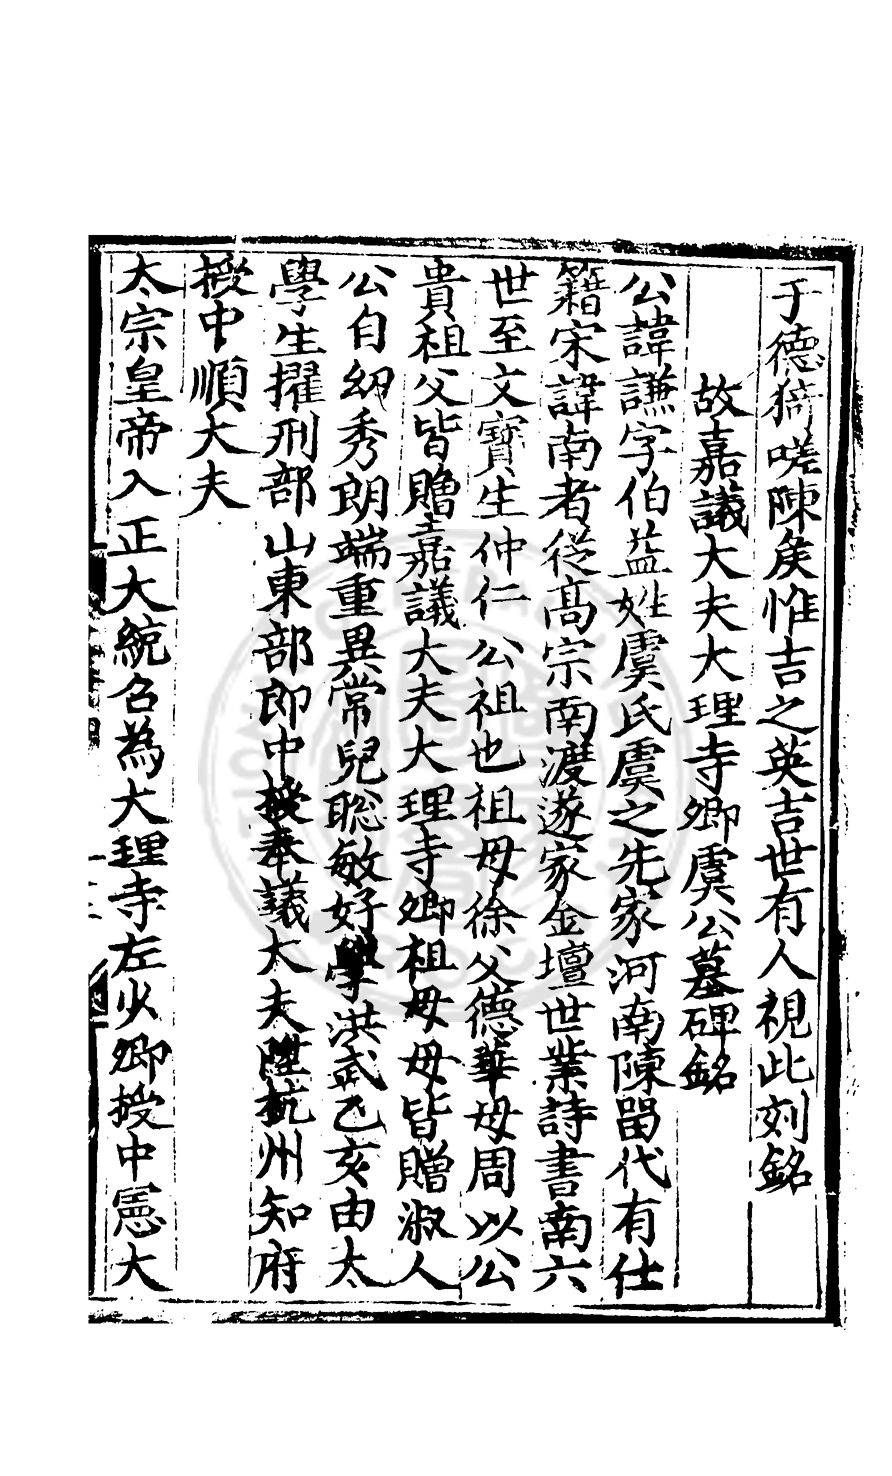 于德猗嗟陳矦惟吉之英吉世有人視此刻銘
故嘉議大夫大理寺卿虞公墓碑銘
公諱謙字伯益姓虞氏虞之先家河南陳留代有仕
籍宋諱南者從髙宗南渡遂家金壇世業詩書南六
世至文寳生仲仁公祖也祖母徐父德華母周以公
貴祖父皆贈嘉議大夫大理寺卿祖母母皆贈淑人
公自幼秀朗端重異常兒聡敏好學洪武乙亥由太
學生擢刑部山東部郎中授奉議大夫陞杭州知府
授中順大夫
太宗皇帝入正大統召為大理寺左少卿授中憲大